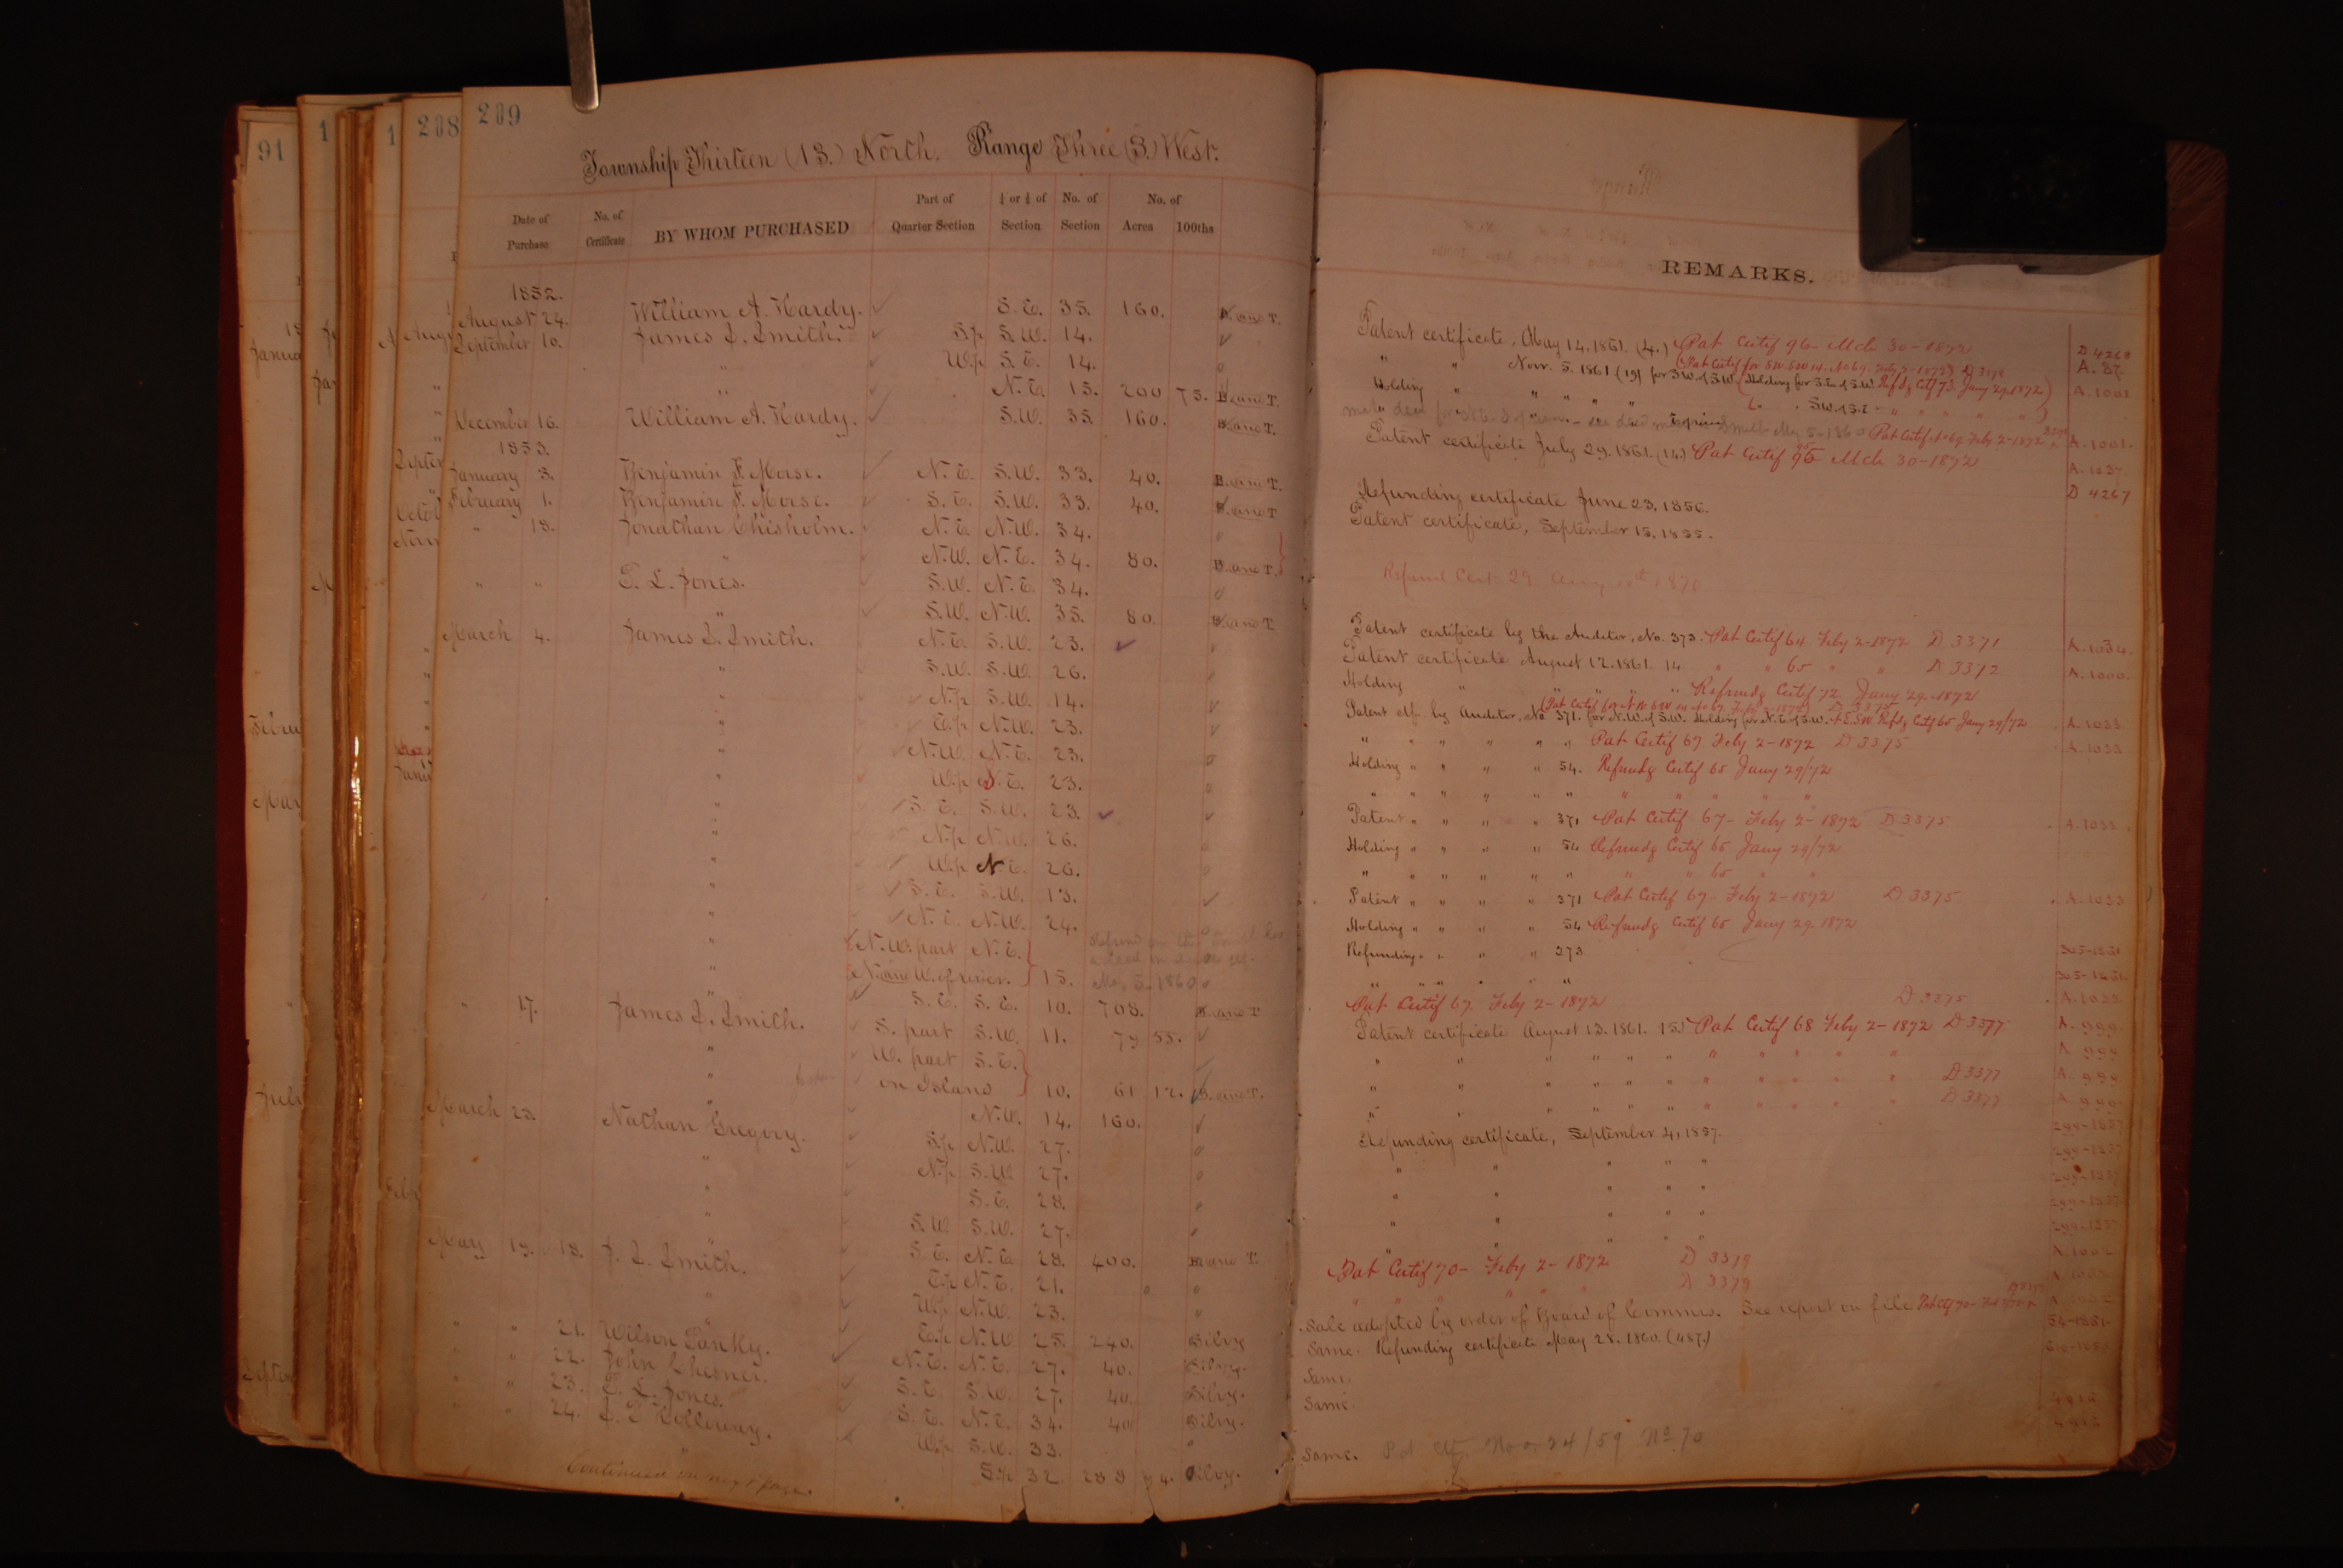 209
208
91
1
1
Township Thirteen (13.) North. Range Three (3.) West.
Date of Purchase No. of Certificate BY WHOM PURCHASED Part of Quarter Section ½ or ¼ of Section No. of Section No. of Acres 100ths
REMARKS.
1852.
August 24. William A. Hardy. S.E. 35. 160. B. and T.
September 10. James L. Smith. S.p S.W. 14.
" W.p S.E. 14.
" N.E. 15. 200 75. B. and T.
December 16. William A. Hardy. S.W. 35 160. B. and T.
1853.
January 3. Benjamin F. Morse. N.E. S.W. 33. 40. B. and T.
February 1. Benjamin F. Morse. S.E. S.W. 33. 40. B. and T
" 18. Jonathan Chisholm. N.E. N.W. 34.
" N.W. N.E. 34. 80. B. and T.
" " T. L. Jones. S.W. N.E. 34.
" S.W. N.W. 35. 80. B. and T
March 4. James L. Smith. N.E. S.W. 23.
" S.W. S.W. 26.
" N.p S.W. 14.
" E.p N.W. 23.
" N.W. N.E. 23.
" W.p S.E. 23.
" S.E. S.W. 23.
" N.p N.W. 26.
" W.p N.E. 26.
" S.E. S.W. 13.
" N.E. N.W. 24.
" N.W. part N.E.
" N. and W. of river. 15. May 5. 1860
" S.E. S.E. 10. 708. B. and T
" 17. James L. Smith. S. part S.W. 11. 79 55.
" W. part S.E.
" on Island 10. 61 12. B. and T.
March 23. Nathan Gregory. N.W. 14. 160.
" S.p N.W. 27.
" N.p S.W. 27.
" S.E. 28.
" S.W. S.W. 27.
S.E. N.E. 28. 400. B. and T.
May 19. 18. J. L. Smith. E.p N.E. 21.
" W.p N.W. 23.
" E.p N.W. 25. 240. Silvy
" " 21. Wilson Panky. N.E. N.E. 27. 40. Silvy.
" " 22. John Chesner. S.E. S.W. 27. 40. Silvy.
" " 23. T. L. Jones. S.E. N.E. 34. 40 Silvy.
" " 24. L. D. Holloway. W.p S.W. 33.
" S.p 32. 288 94. Silvy.
Continued on next page.
Patent certificate, May 14. 1861. (4.) Pat Certif 96 - Mch 30 - 1872 D 4268
" " Nov. 5. 1861 (19) for S.W. of S.W. (Holding for S.E. of S.W. Refdg Certf 73. Jany 29. 1872) A. 87.
Holding " " " " " S.W. of S.E. " " " " A. 1001
Pat Certif No 69 Feby 2 - 1872 A. 1001.
Patent certificate July 29. 1861. (14.) Pat Certif 95 Mch 30 - 1872 A. 1037.
D 4267
Refunding certificate June 23, 1856.
Patent certificate, September 15, 1855.
Refund Cert 29 Aug 1870
Patent certificate by the Auditor, No. 373. Pat Certif 64. Feby 2 - 1872 D 3371 A. 1034.
Patent certificate August 12. 1861. 14 " " 65 " " D 3372 A. 1000.
Holding " " " " " Refundg Certif 72 Jany 29. 1872
Patent ctf. by Auditor, No 371. for N.W. of S.W. Holding for N.E. of S.W. Refdg Certf 65 Jany 29/72 A. 1033
" " " " " " Pat Certif 67 Feby 2 - 1872 D 3375 A. 1033
Holding " " " " 54. Refundg Certif 65 Jany 29/72
" " " " " " " " " " "
Patent " " " " 371 Pat Certif 67 - Feby 2 - 1872 D 3375 A. 1033
Holding " " " " 54 Refundg Certif 65 Jany 29/72
" " " " " " " " 65 " "
Patent " " " " 371 Pat Certif 67 - Feby 2 - 1872 D 3375 A. 1033
Holding " " " " 54 Refundg Certif 65 Jany 29. 1872
Refunding " " " " 273 305-1851
" " " " " " 305-1851.
Pat Certif 67. Feby 2 - 1872 D 3375 A. 1033
Patent certificate August 13. 1861. 15 Pat Certif 68 Feby 2 - 1872 D 3377 A. 999.
" " " " " " " " " " " A 999
" " " " " " " " " " " D 3377 A. 999
" " " " " " " " " " " D 3377 A 999
Refunding certificate, September 4, 1857. 299-1857
" " " " " 299-1857
" " " " " 299-1857
" " " " " 299-1857
" " " " " 299-1857
Pat Certif 70 - Feby 2 - 1872 D 3379 A. 1002
" " " " " D 3379
Sale adopted by order of Board of Commrs. See report on file
Same. Refunding certificate May 28. 1860. (487.)
Same.
Same.
Same. Pat Ctf Nov. 24/59 No. 70